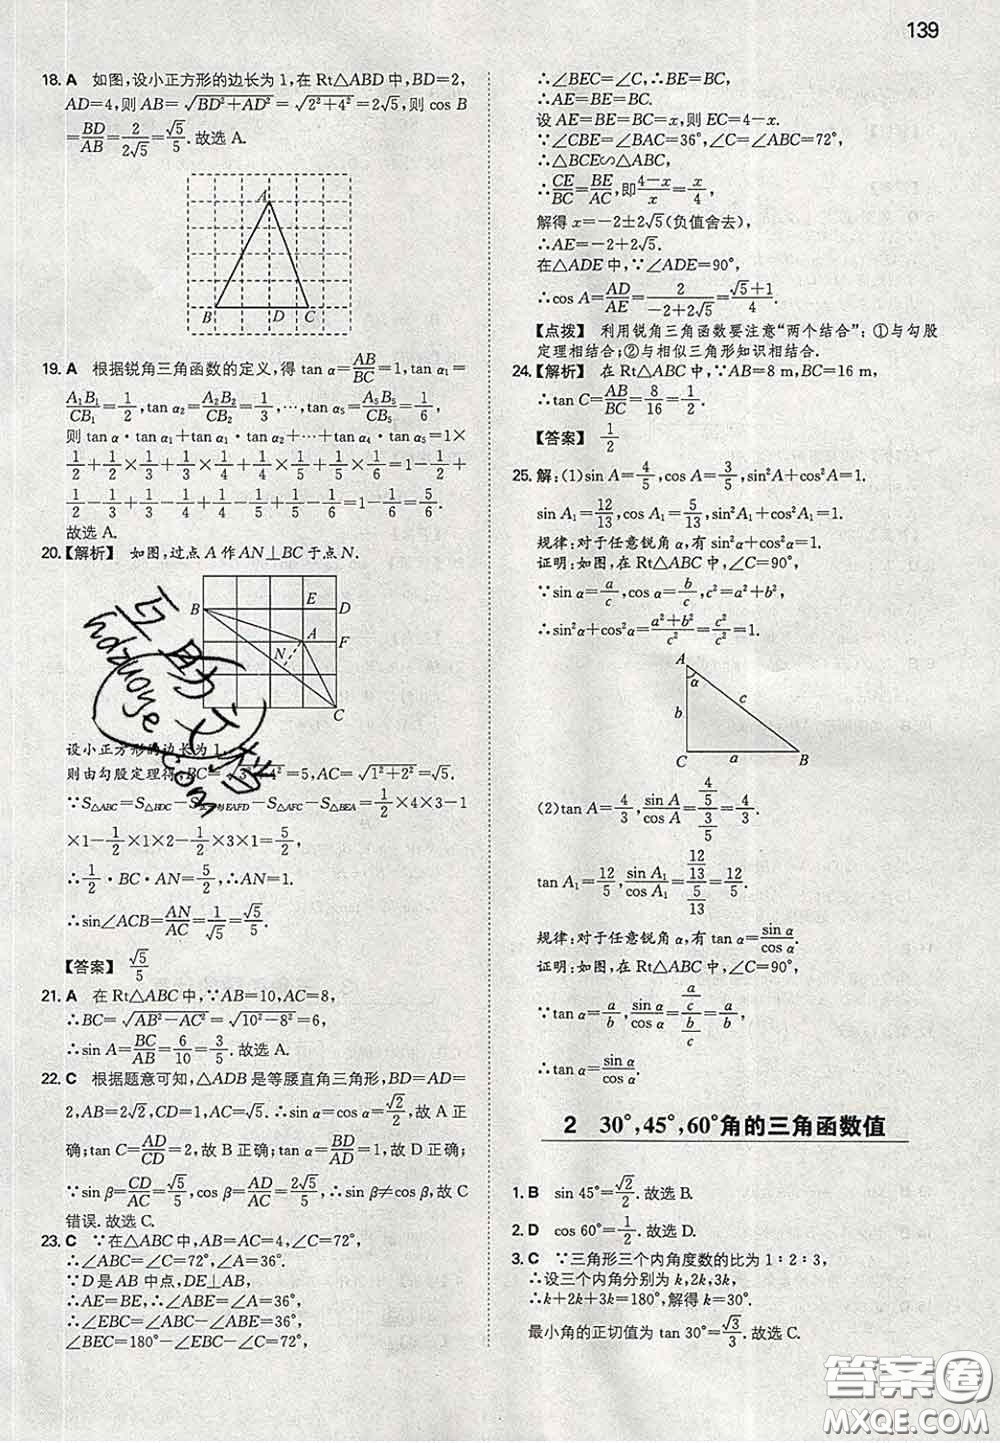 139
18. A 如图,设小正方形的边长为1,在Rt△ABD中,BD=2,
AD=4,则AB=√(BD²+AD²)=√(2²+4²)=2√5,则cos B
=BD/AB=2/(2√5)=√5/5.故选A.
A
B D C
19. A 根据锐角三角函数的定义,得tan α=AB/BC=1,tan α₁=
A₁B₁/CB₁=1/2,tan α₂=A₂B₂/CB₂=1/3,…,tan α₅=A₅B₅/CB₅=1/6,
则tan α·tan α₁+tan α₁·tan α₂+…+tan α₄·tan α₅=1×
1/2+1/2×1/3+1/3×1/4+1/4×1/5+1/5×1/6=1-1/2+
1/2-1/3+1/3-1/4+1/4-1/5+1/5-1/6=1-1/6=5/6.
故选A.
20.【解析】 如图,过点A作AN⊥BC于点N.
E
B D
A F
N
C
设小正方形的边长为1,
则由勾股定理得,BC=√(3²+4²)=5,AC=√(1²+2²)=√5.
∵S△ABC=S△BDC-S正方形EAFD-S△AFC-S△BEA=1/2×4×3-1
×1-1/2×1×2-1/2×3×1=5/2,
∴1/2·BC·AN=5/2,∴AN=1.
∴sin∠ACB=AN/AC=1/√5=√5/5.
【答案】 √5/5
21. A 在Rt△ABC中,∵AB=10,AC=8,
∴BC=√(AB²-AC²)=√(10²-8²)=6,
∴sin A=BC/AB=6/10=3/5.故选A.
22. C 根据题意可知,△ADB是等腰直角三角形,BD=AD=
2,AB=2√2,CD=1,AC=√5.∴sin α=cos α=√2/2,故A正
确;tan C=AD/CD=2,故B正确;tan α=BD/AD=1,故D正确;
∵sin β=CD/AC=√5/5,cos β=AD/AC=2√5/5,∴sin β≠cos β,故C
错误.故选C.
23. C ∵在△ABC中,AB=AC=4,∠C=72°,
∴∠ABC=∠C=72°,∠A=36°.
∵D是AB中点,DE⊥AB,
∴AE=BE,∴∠ABE=∠A=36°,
∴∠EBC=∠ABC-∠ABE=36°,
∠BEC=180°-∠EBC-∠C=72°,
∴∠BEC=∠C,∴BE=BC,
∴AE=BE=BC.
设AE=BE=BC=x,则EC=4-x.
∵∠CBE=∠BAC=36°,∠C=∠ABC=72°,
∴△BCE∽△ABC,
∴CE/BC=BE/AC,即(4-x)/x=x/4,
解得x=-2±2√5(负值舍去),
∴AE=-2+2√5.
在△ADE中,∵∠ADE=90°,
∴cos A=AD/AE=2/(-2+2√5)=(√5+1)/4.
【点拨】 利用锐角三角函数要注意“两个结合”:①与勾股
定理相结合;②与相似三角形知识相结合.
24.【解析】 在Rt△ABC中,∵AB=8 m,BC=16 m,
∴tan C=AB/BC=8/16=1/2.
【答案】 1/2
25. 解:(1)sin A=4/5,cos A=3/5,sin²A+cos²A=1.
sin A₁=12/13,cos A₁=5/13,sin²A₁+cos²A₁=1.
规律:对于任意锐角α,有sin²α+cos²α=1.
证明:如图,在Rt△ABC中,∠C=90°,
∵sin α=a/c,cos α=b/c,c²=a²+b²,
∴sin²α+cos²α=(a²+b²)/c²=c²/c²=1.
A
α
b c
C a B
(2)tan A=4/3,sin A/cos A=(4/5)/(3/5)=4/3.
tan A₁=12/5,sin A₁/cos A₁=(12/13)/(5/13)=12/5.
规律:对于任意锐角α,有tan α=sin α/cos α.
证明:如图,在Rt△ABC中,∠C=90°,
∵tan α=a/b,sin α/cos α=(a/c)/(b/c)=a/b,
∴tan α=sin α/cos α.
2 30°,45°,60°角的三角函数值
1. B sin 45°=√2/2.故选B.
2. D cos 60°=1/2.故选D.
3. C ∵三角形三个内角度数的比为1∶2∶3,
∴设三个内角分别为k,2k,3k,
∴k+2k+3k=180°,解得k=30°.
最小角的正切值为tan 30°=√3/3.故选C.
互助文档
hdzuoye.com
答案圈
MXQE.COM